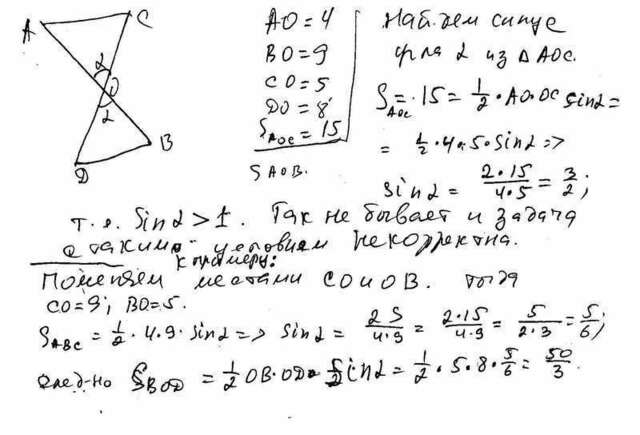 A
C
α
O
α
B
D
AO = 4
BO = 9
CO = 5
DO = 8
S_AOC = 15
S AOB.
Найдем синус
угла α из △AOC.
S_AOC = 15 = 1/2 · AO · OC sinα =
= 1/2 · 4 · 5 · sinα =>
sinα = 2·15/4·5 = 3/2;
т.е. sinα > 1. Так не бывает и задача
с такими условиям некорректна.
к примеру:
Поменяем местами CO и OB. тогда
CO = 9; BO = 5.
S_ABC = 1/2 · 4 · 9 · sinα => sinα = 2S/4·9 = 2·15/4·9 = 5/2·3 = 5/6;
след-но S_BOD = 1/2 OB · OD · sinα = 1/2 · 5 · 8 · 5/6 = 50/3.